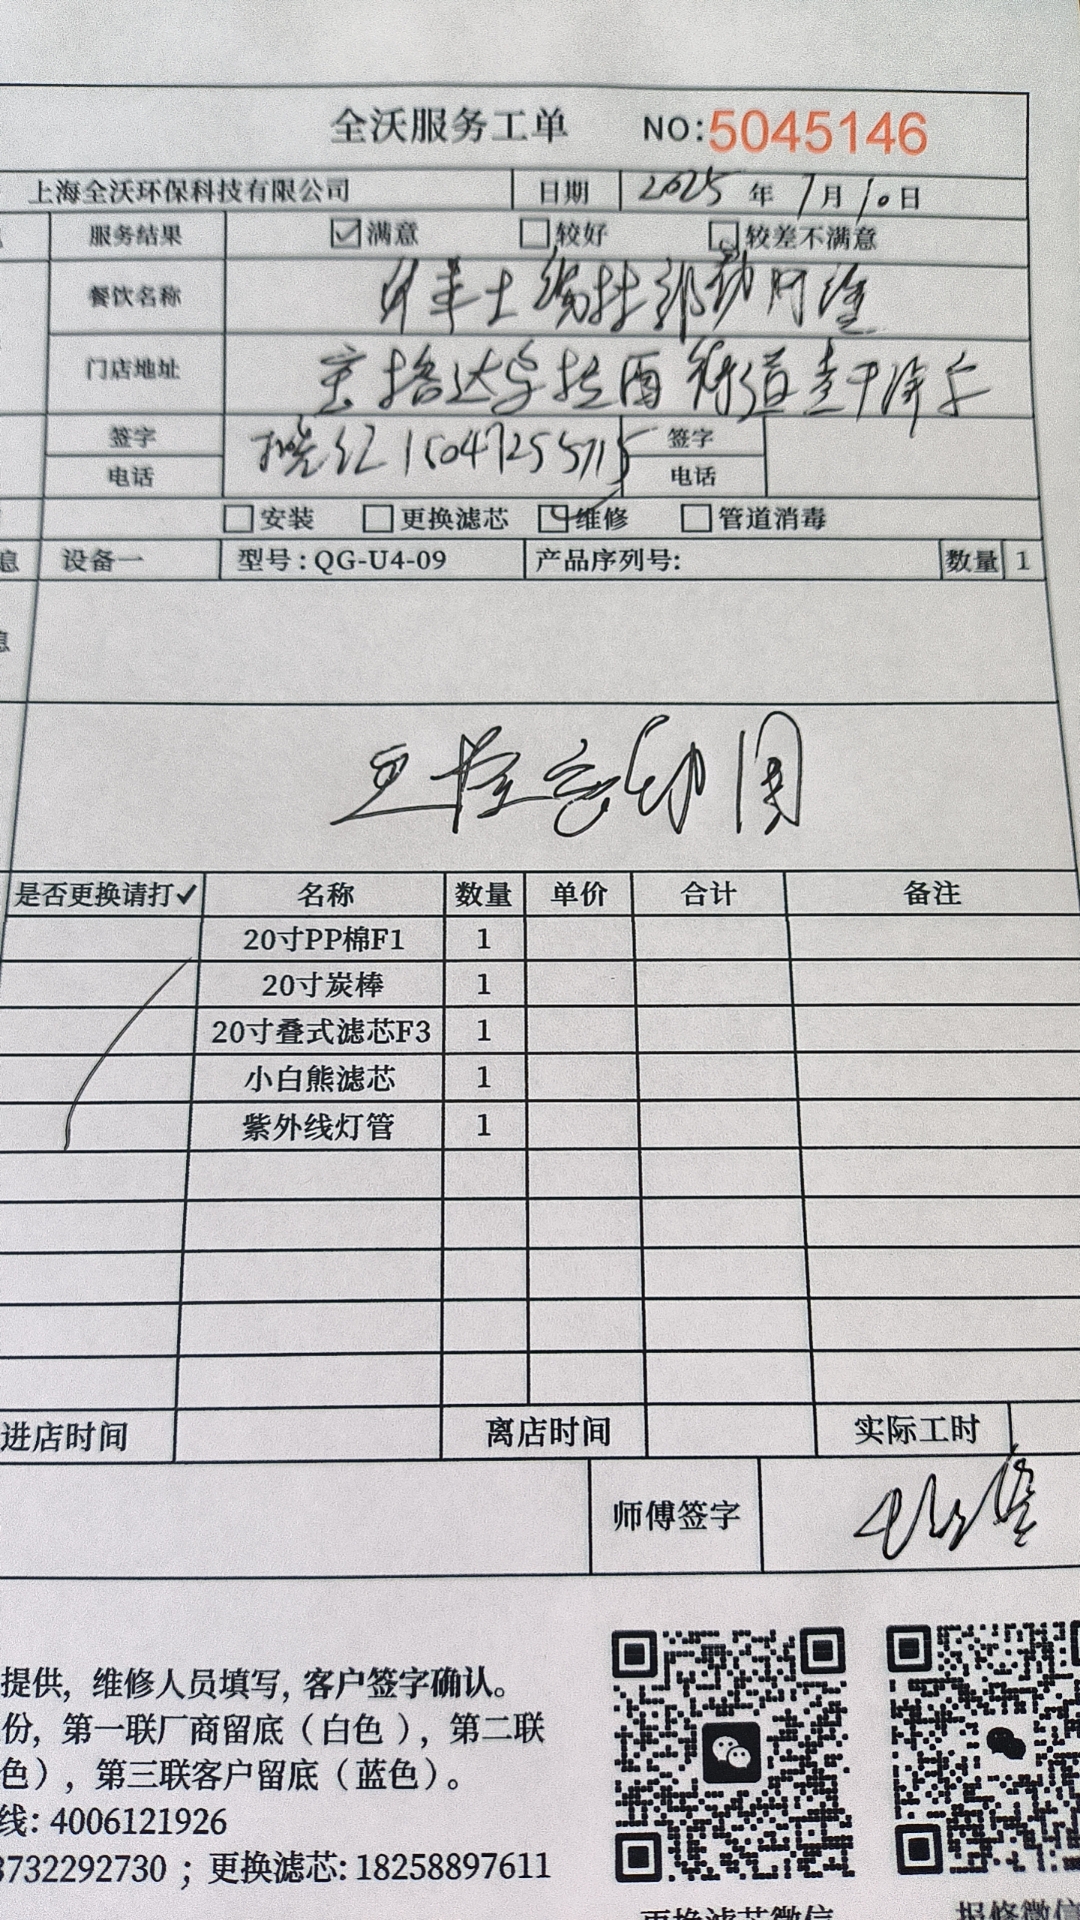 全沃服务工单 NO:5045146
上海全沃环保科技有限公司 日期 2025年7月10日
服务结果 满意 较好 较差不满意
餐饮名称
门店地址 街道
签字 签字
电话 15047255715 电话
安装 更换滤芯 维修 管道消毒
息 设备一 型号:QG-U4-09 产品序列号: 数量 1
息
是否更换请打✓ 名称 数量 单价 合计 备注
20寸PP棉F1 1
20寸炭棒 1
20寸叠式滤芯F3 1
小白熊滤芯 1
紫外线灯管 1
进店时间 离店时间 实际工时
师傅签字
提供, 维修人员填写, 客户签字确认。
份, 第一联厂商留底(白色), 第二联
色), 第三联客户留底(蓝色)。
线: 4006121926
3732292730 ; 更换滤芯: 18258897611
更换滤芯微信 报修微信